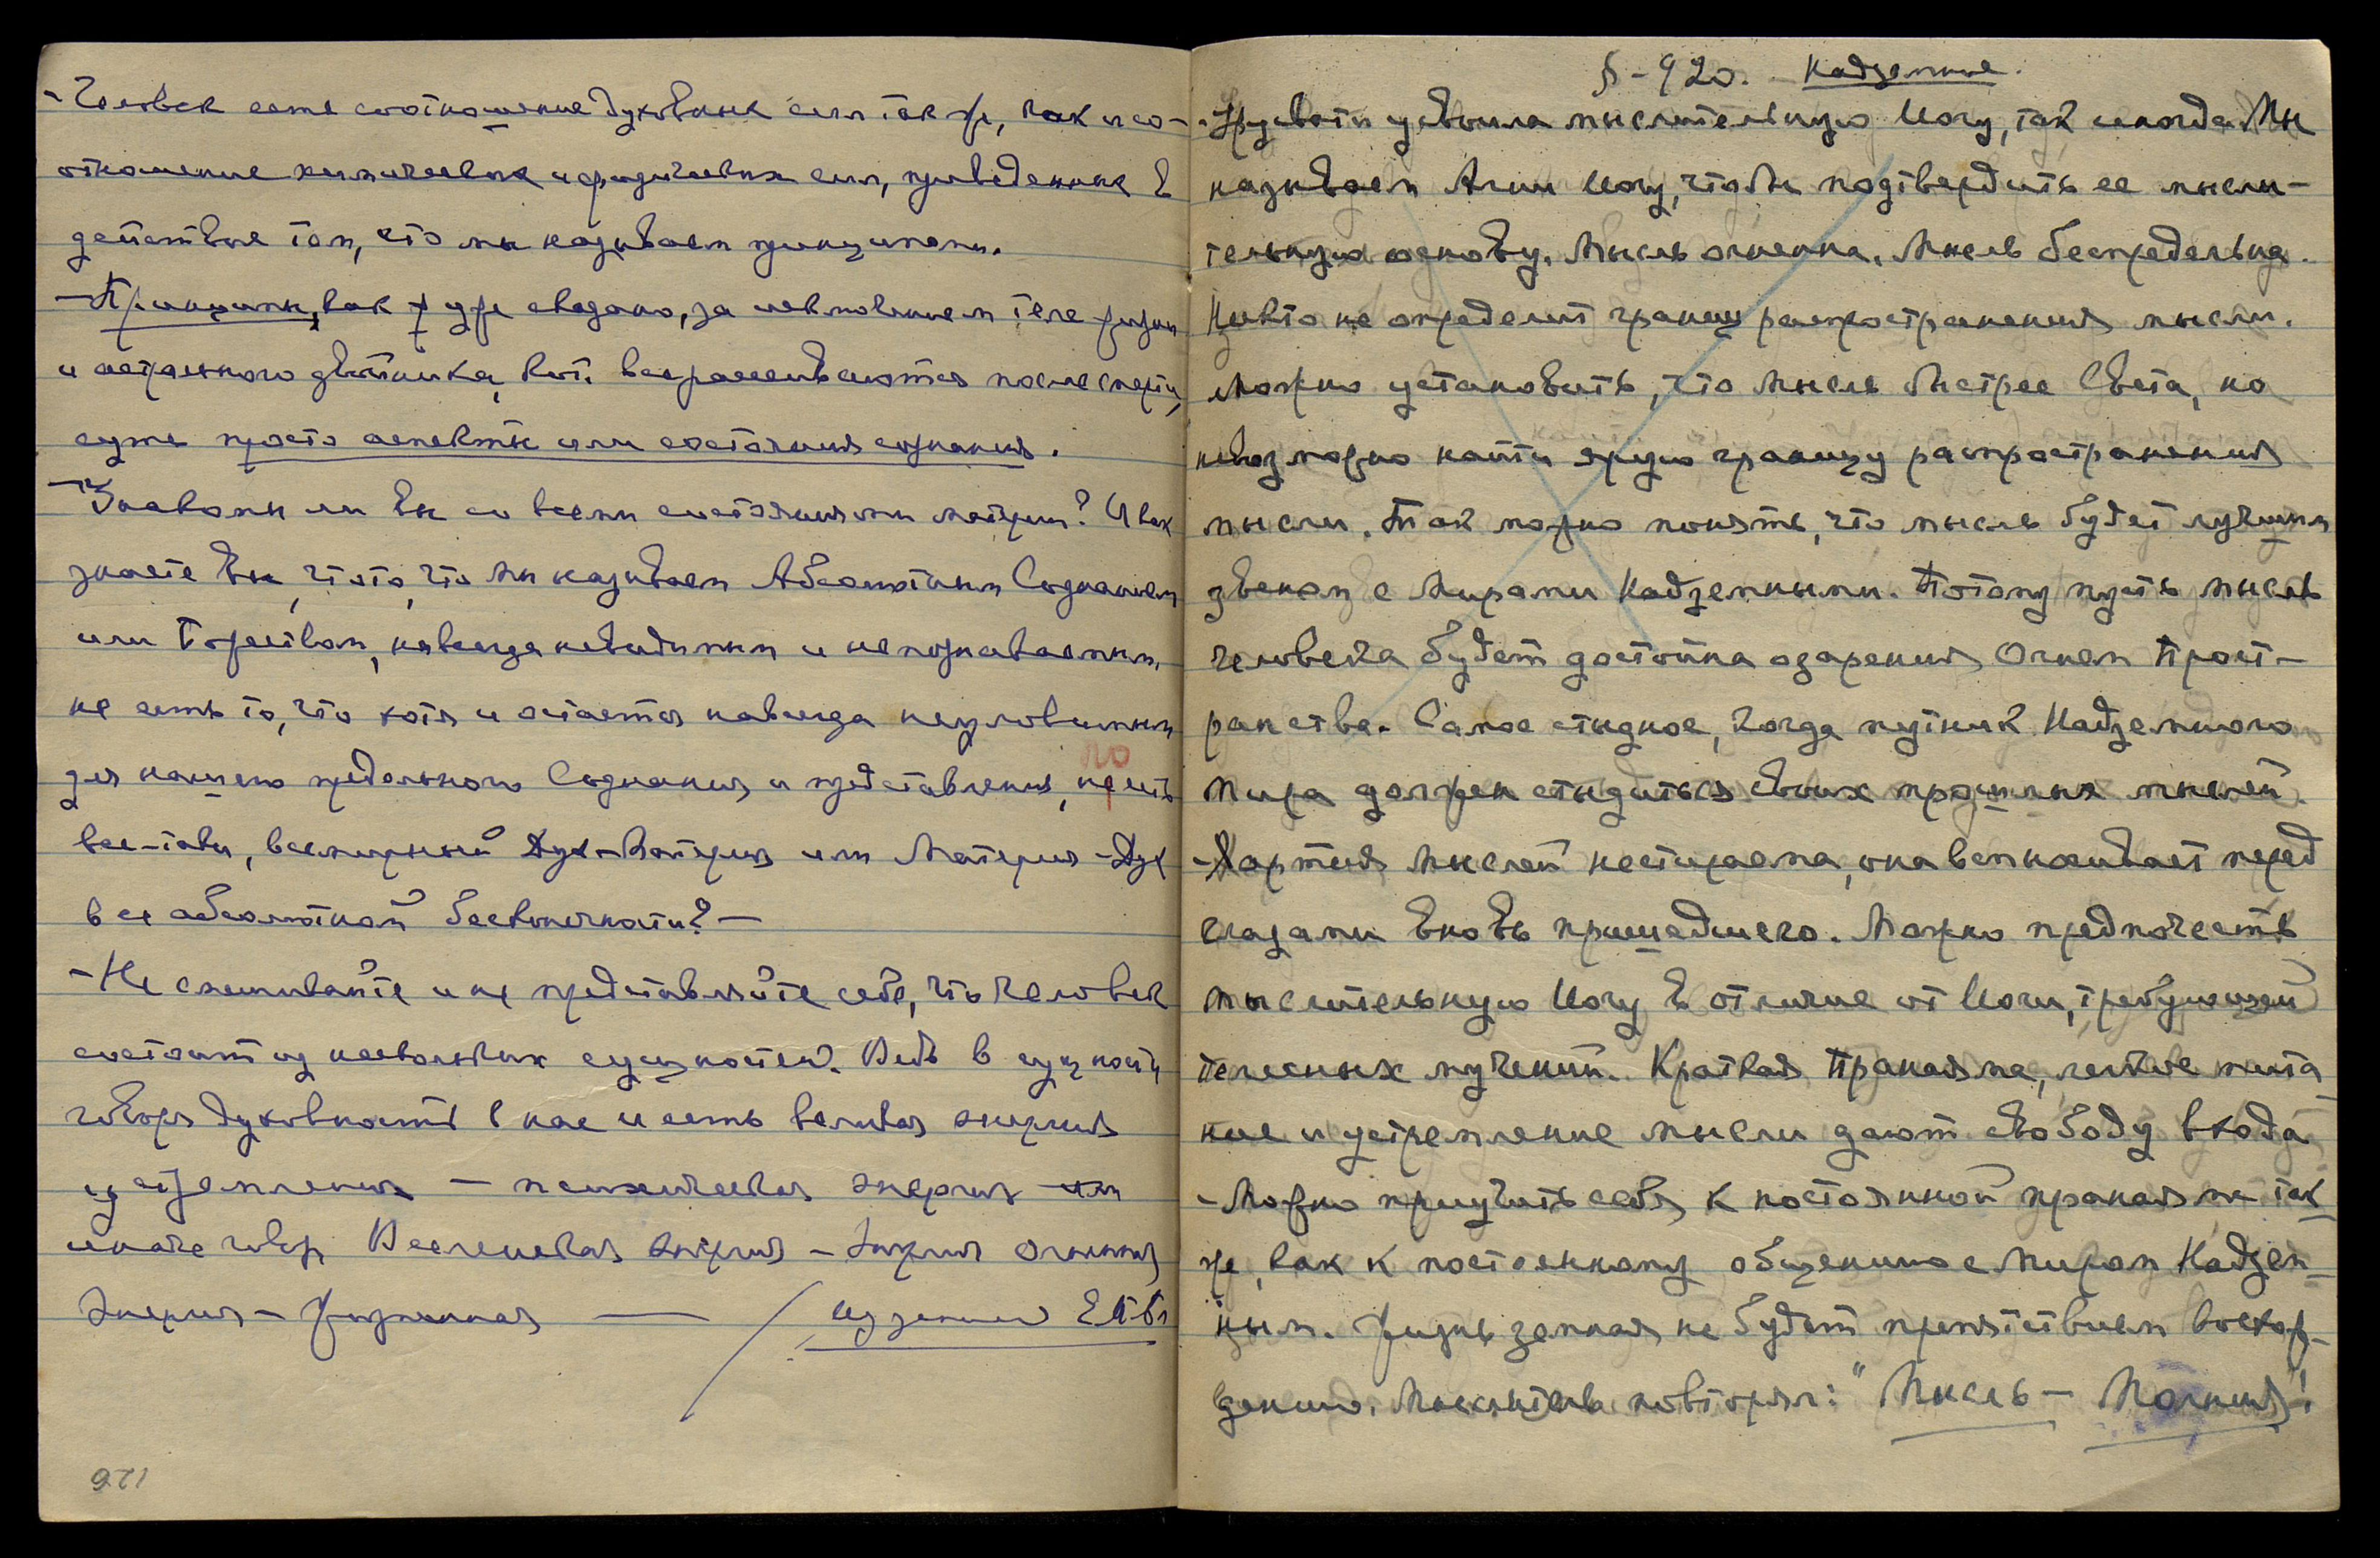 - Человек есть соотношение духовных сил так же, как и со-
отношение химических и физических сил, приведенных в
действие тем, что мы называем принципами.
- Принципы, как уже сказано, за исключением тела физич
и астрального двойника, кот. все рассеиваются после смерти,
суть просто аспекты или состояния сознания.
- Знакомы ли Вы со всеми состояниями материи? И как
знаете Вы, что то, что Мы называем Абсолютным Сознанием
или Божеством, навсегда невидимым и непознаваемым,
не есть то, что хотя и остается навсегда неуловимым
для нашего предельного Сознания и представления, но есть
все-таки, всемирный Дух-Материя или Материя-Дух
в ее абсолютной бесконечности? -
- Не смешивайте и не представляйте себе, что человек
состоит из нескольких сущностей. Ведь в сущности
говоря духовность в нас и есть великая энергия
устремления - психическая энергия или
иначе говор Вселенская энергия - Энергия огненная
Энергия - жизненная — / из записей
126
§ - 920. Надземное.
- Урусвати усвоила мыслительную Йогу, так иногда Мы
называем Агни Йогу, чтобы подтвердить ее мысли-
тельную основу. Мысль огненна, Мысль беспредельна.
Никто не определит границ распространения мысли.
Можно установить, что мысль быстрее Света, но
невозможно найти границу распространения
мысли. Так можно понять, что мысль будет лучшим
звеном с Мирами Надземными. Потому пусть мысль
человека будет достойна озарения Огнем Прост-
ранства. Самое стыдное, когда путник Надземного
Мира должен стыдиться своих прошлых мыслей.
- Хартия Мыслей нестираема, она вспыхивает перед
глазами вновь пришедшего. Можно предпочесть
мыслительную Йогу в отличие от Йоги, требующей
телесных мучений. Краткая Пранаяма, легкое пита
ние и устремление мысли дают свободу входа
- Можно приучить себя к постоянной пранаяме так
же, как к постоянному общению с Миром Надзем-
ным. Жизнь земная не будет препятствием восхож-
дению. Мыслитель повторял: "Мысль - Молния"!